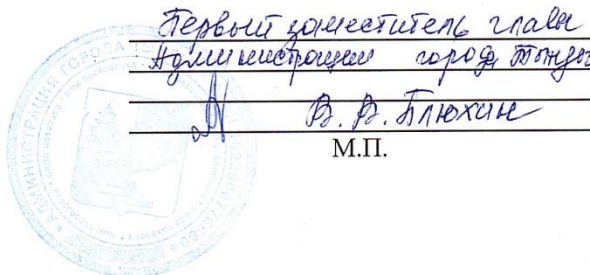 Первый заместитель главы
Администрации город Тынды
В. В. Блюхин
М.П.
АДМИНИСТРАЦИЯ ГОРОДА